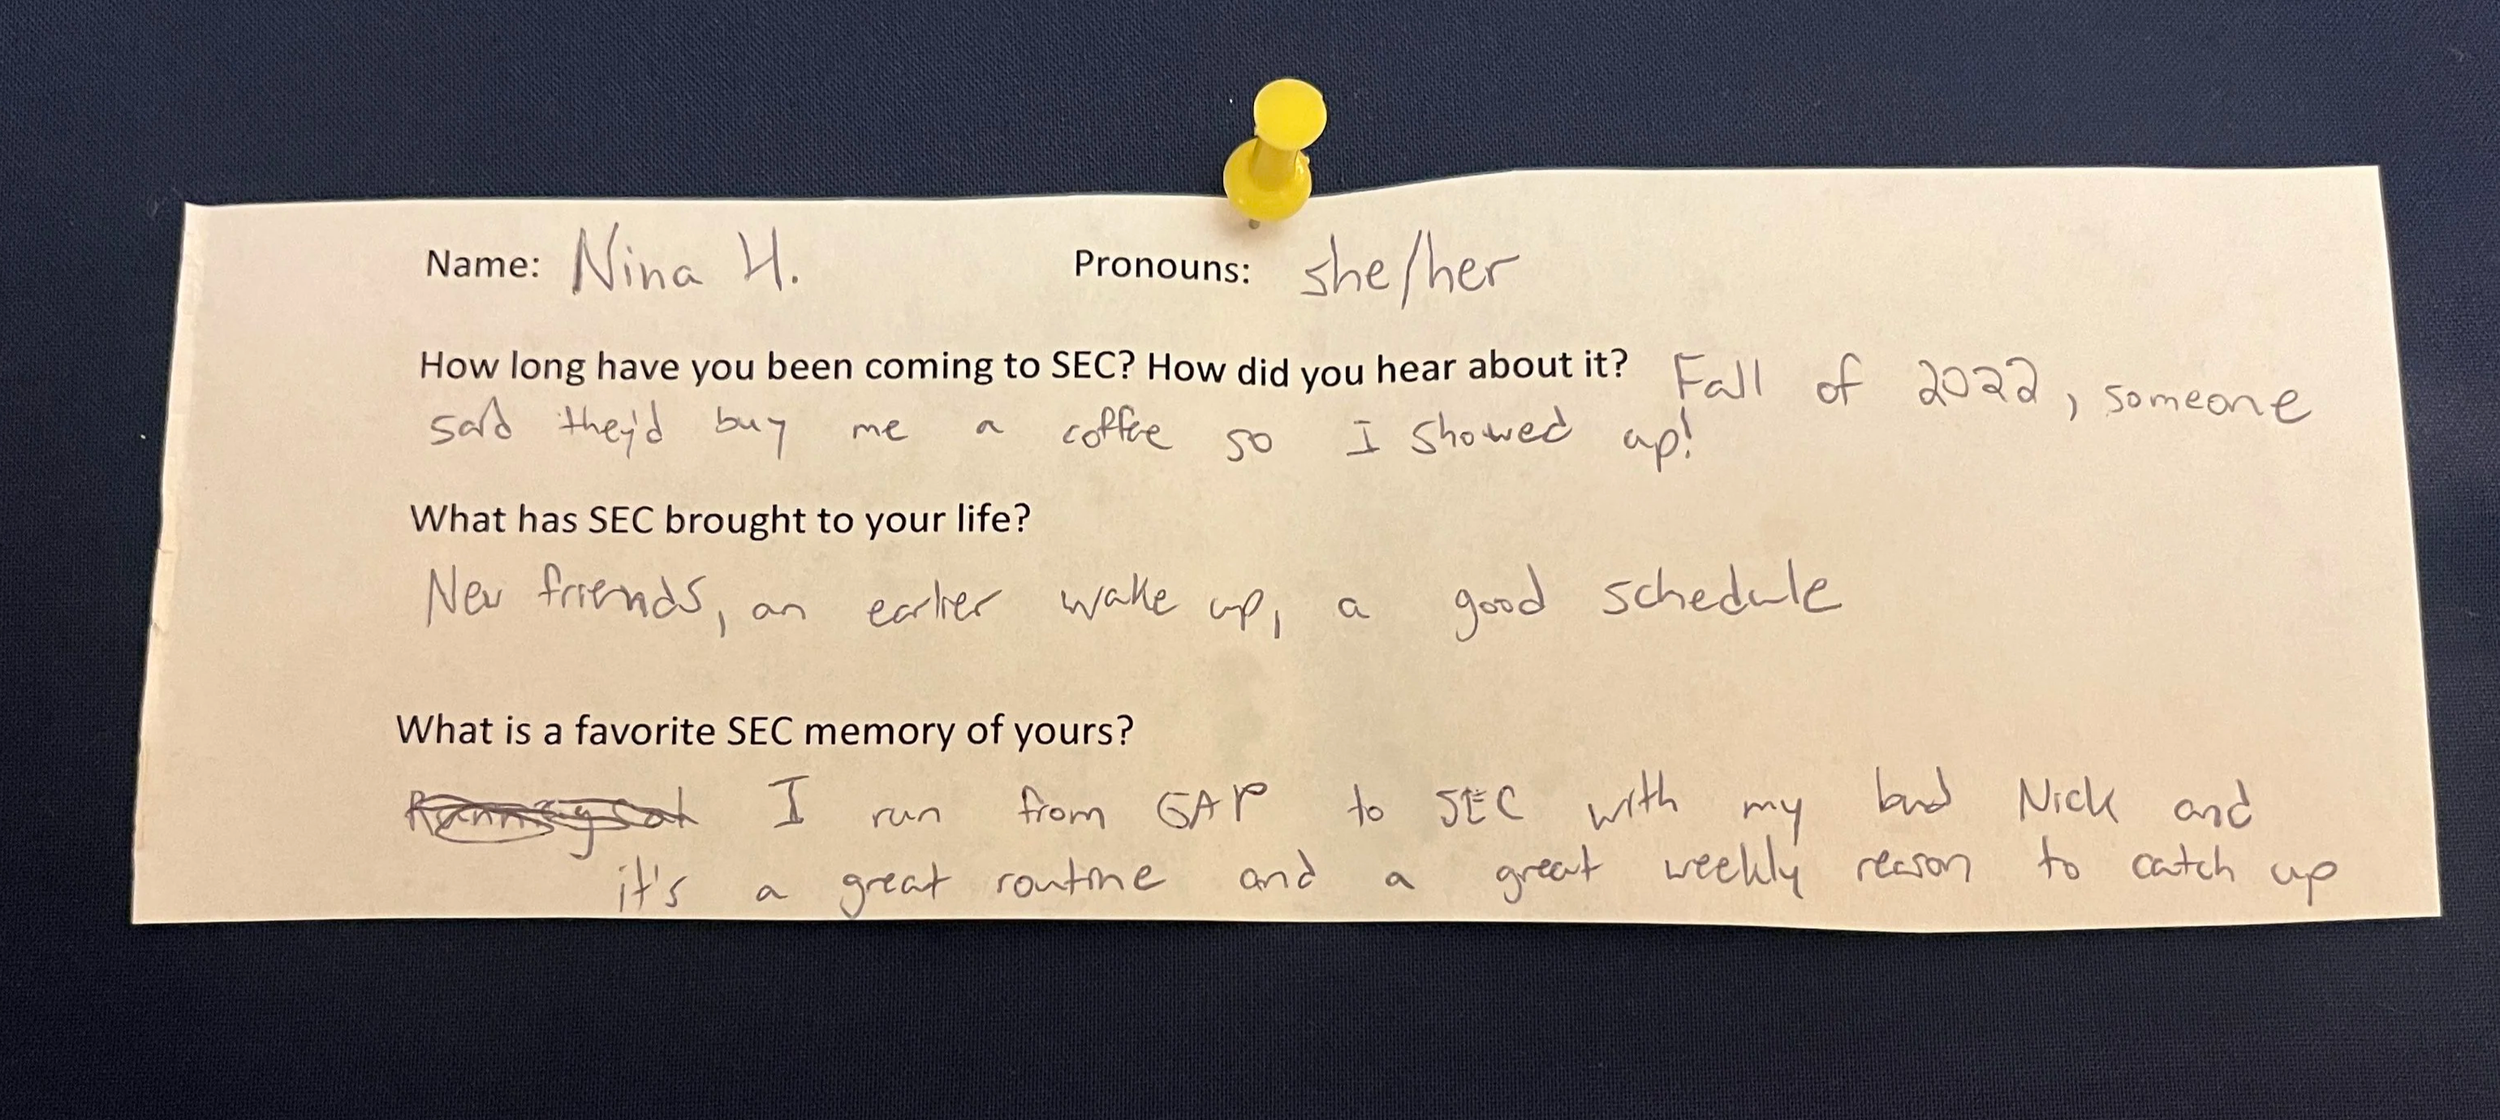 Name: Nina H. Pronouns: she/her
How long have you been coming to SEC? How did you hear about it? Fall of 2022, someone
said they'd buy me a coffee so I showed up!
What has SEC brought to your life?
New friends, an earlier wake up, a good schedule
What is a favorite SEC memory of yours?
I run from GAP to SEC with my bud Nick and
it's a great routine and a great weekly reason to catch up